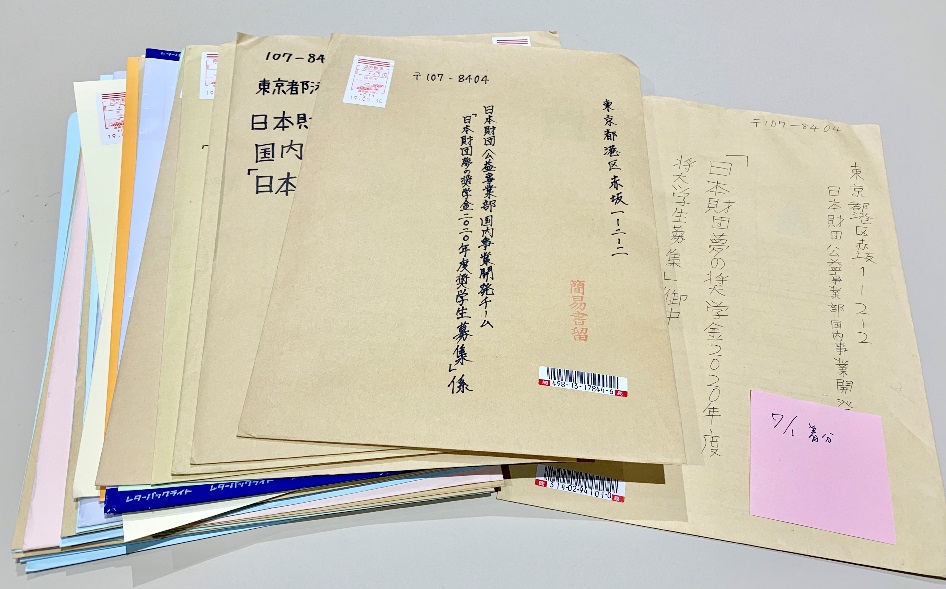 〒107-8404
東京都港区赤坂一ー二ー二
日本財団公益事業部国内事業開発チーム
「日本財団夢の奨学金二〇二〇年度奨学生募集」係
簡易書留
107-84
東京都港
日本財
国内
「日本
〒107-8404
東京都港区赤坂1-2-2
日本財団公益事業部国内事業開発
「日本財団夢の奨学金2020年度
奨学生募集」御中
7/1 着分
レターパックライト レターパックライト